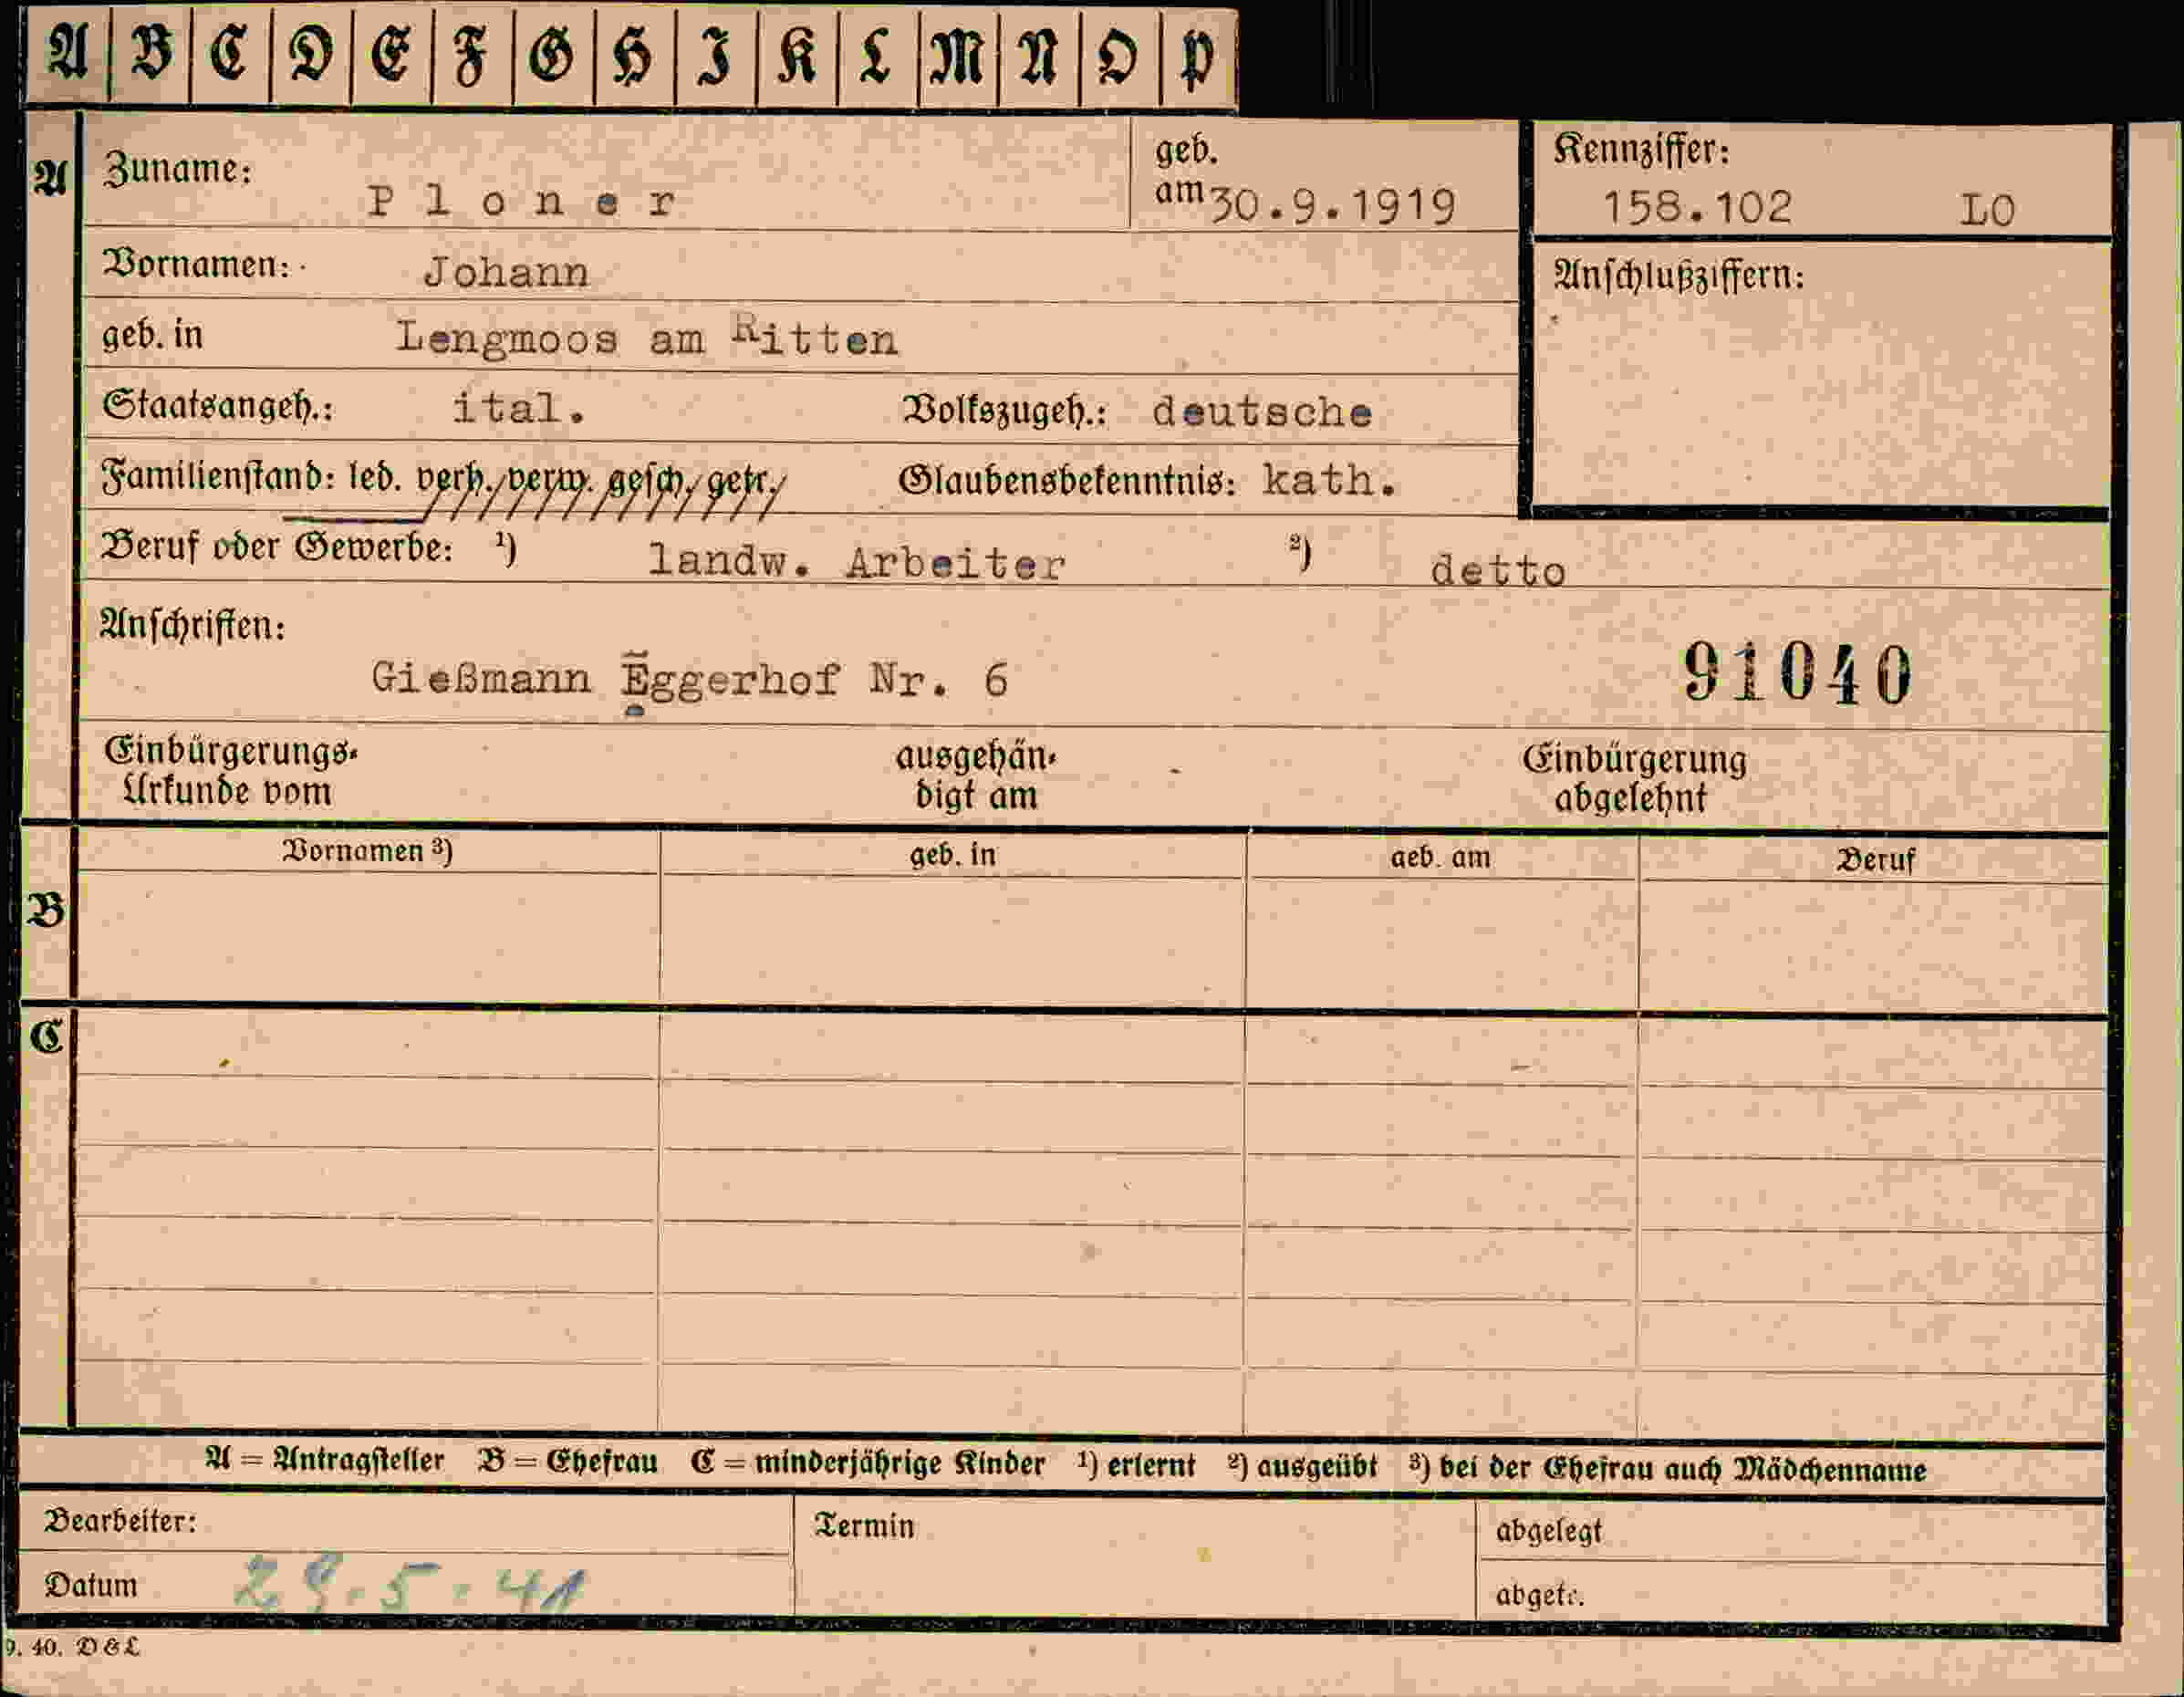 A B C D E F G H I K L M N O P
A Zuname: Ploner geb. am 30.9.1919 Kennziffer: 158.102 LO
Vornamen: Johann Anschlußziffern:
geb. in Lengmoos am Ritten
Staatsangeh.: ital. Volkszugeh.: deutsche
Familienstand: led. verh. verw. gesch. getr. Glaubensbekenntnis: kath.
Beruf oder Gewerbe: 1) landw. Arbeiter 2) detto
Anschriften:
Gießmann Eggerhof Nr. 6 91040
Einbürgerungs- ausgehän- Einbürgerung
Urkunde vom digt am abgelehnt
Vornamen 3) geb. in geb. am Beruf
B
C
A = Antragsteller B = Ehefrau C = minderjährige Kinder 1) erlernt 2) ausgeübt 3) bei der Ehefrau auch Mädchenname
Bearbeiter: Termin abgelegt
Datum 29.5.41 abgetr.
9. 40. D & L